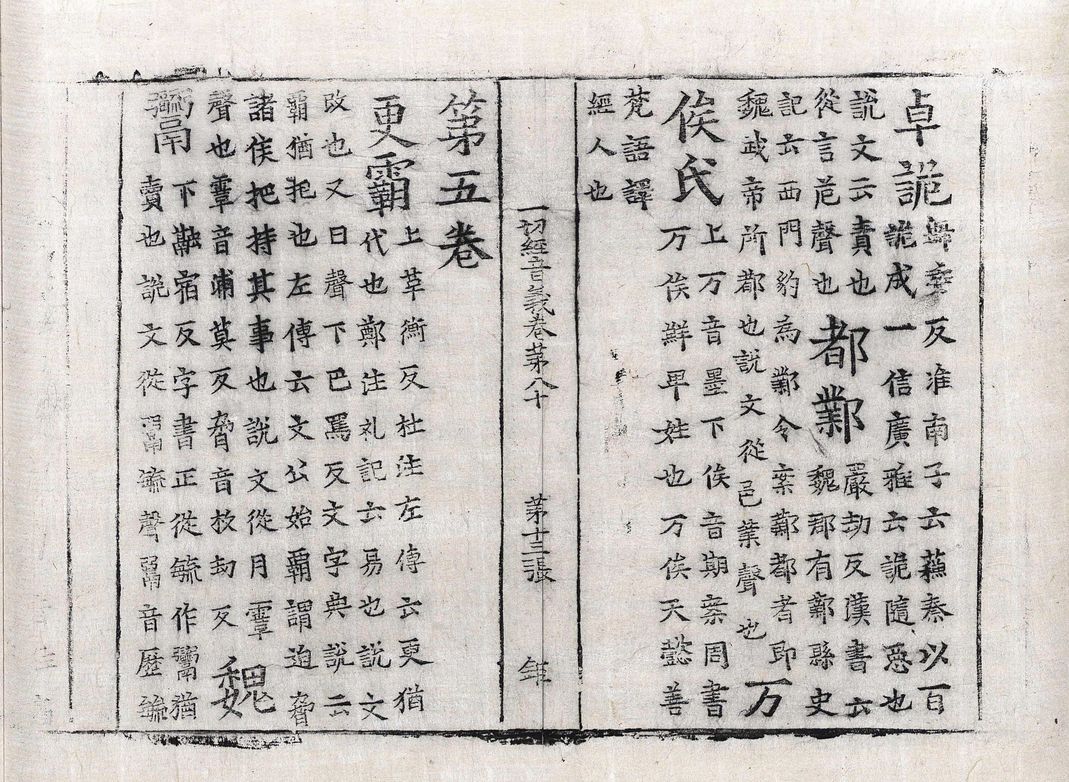 卓詭歸委反淮南子云蘓秦以百
詭成一信廣雅云詭隨惡也
說文云責也
從言危聲也
都鄴嚴劫反漢書云
魏郡有鄴縣史
記云西門豹為鄴令案鄴都者即
魏武帝所都也說文從邑業聲也
万
俟氏上万音墨下俟音期案周書
万俟鮮卑姓也万俟天懿善
梵語譯
經人也
一切經音義卷苐八十 苐十三張
第五卷
更霸上革衡反杜注左傳云更猶
代也鄭注礼記云易也說文
改也又曰聲下巴罵反文字典說云
霸猶把也左傳云文公始霸謂迫脅
諸侯把持其事也說文從月䨣
聲也䨣音浦莫反脅音刼反
魏
鬻下融宿反字書正從毓作鬻猶
賣也說文從䰜毓聲䰜音歷毓